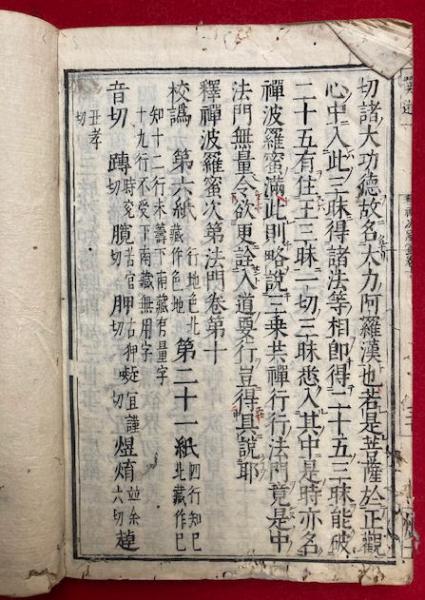 切諸大功德故名大力阿羅漢也若是菩薩於正觀
心中入此三昧得諸法等相卽得二十五三昧能破
二十五有住王三昧一切三昧悉入其中是時亦名
禪波羅蜜滿此則略說三乘共禪行行法門竟是中
法門無量今欲更詮入道要行豈得具說耶
釋禪波羅蜜次第法門卷第十
校譌 第六紙 行地色北藏作色地 第二十一紙 四行知巳北藏作已
知十二行未蓋下南藏有量字
十九行不受下南藏無用字
音切 蹲 時兗切 臗 苦官切 胛 古狎切 㘈 宜謹切 煜焴 並余六切 趠
丑孝切